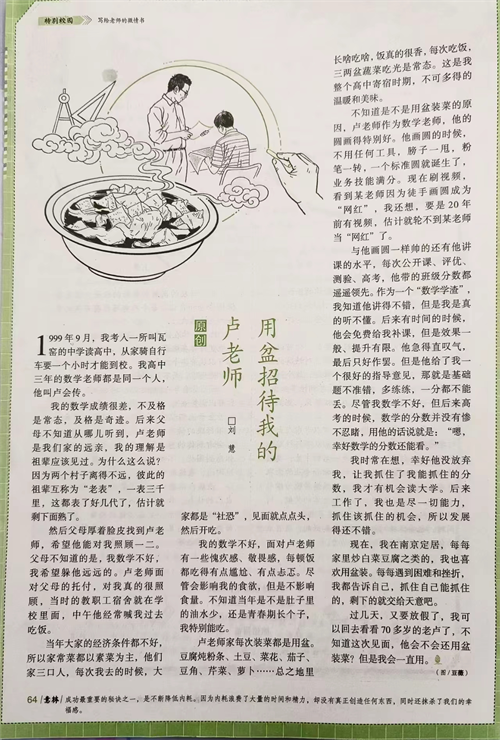 特别校园
写给老师的微情书
用盆招待我的
卢老师
原创
□刘 慧
1999年9月，我考入一所叫瓦
窑的中学读高中，从家骑自行
车要一个小时才能到校。我高中
三年的数学老师都是同一个人，
他叫卢会传。
我的数学成绩很差，不及格
是常态，及格是奇迹。后来父
母不知道从哪儿听到，卢老师
是我们家的远亲，我的理解是
祖辈应该见过。为什么这么说？
因为两个村子离得不远，彼此的
祖辈互称为“老表”，一表三千
里，这都表了好几代了，估计就
剩下面熟了。
然后父母厚着脸皮找到卢老
师，希望他能对我照顾一二。
父母不知道的是，我数学不好，
我希望躲他远远的。卢老师面
对父母的托付，对我真的很照
顾，当时的教职工宿舍就在学
校里面，中午他经常喊我过去
吃饭。
当年大家的经济条件都不好，
所以家常菜都以素菜为主，他们
家三口人，每次我去的时候，大
家都是“社恐”，见面就点点头，
然后开吃。
我的数学不好，面对卢老师
有一些愧疚感、敬畏感，每顿饭
都吃得有点尴尬、有点忐忑。尽
管会影响我的食欲，但是不影响
食量。不知道当年是不是肚子里
的油水少，还是青春期长个子，
我特别能吃。
卢老师家每次装菜都是用盆。
豆腐炖粉条、土豆、菜花、茄子、
豆角、芹菜、萝卜……总之地里
长啥吃啥，饭真的很香，每次吃饭，
三两盆蔬菜吃光是常态。这是我
整个高中寄宿时期，不可多得的
温暖和美味。
不知道是不是用盆装菜的原
因，卢老师作为数学老师，他的
圆画得特别好。他画圆的时候，
不用任何工具，膀子一甩，粉
笔一转，一个标准圆就诞生了，
业务技能满分。现在刷视频，
看到某老师因为徒手画圆成为
“网红”，我还想，要是20年
前有视频，估计就轮不到某老师
当“网红”了。
与他画圆一样帅的还有他讲
课的水平，每次公开课、评优、
测验、高考，他带的班级分数都
遥遥领先。作为一个“数学学渣”，
我知道他讲得不错，但是我是真
的听不懂。后来有时间的时候，
他会免费给我补课，但是效果一
般、提升有限。他急得直叹气，
最后只好作罢。但是他给了我一
个很好的指导意见，那就是基础
题不准错，多练练，一分都不能
丢。尽管我数学不好，但后来高
考的时候，数学的分数并没有惨
不忍睹，用他的话说就是：“嗯，
幸好数学的分数还能看。”
我时常在想，幸好他没放弃
我，让我抓住了我能抓住的分
数，我才有机会读大学。后来
工作了，我也是尽一切能力，
抓住该抓住的机会，所以发展
得还不错。
现在，我在南京定居，每每
家里炒白菜豆腐之类的，我也喜
欢用盆装。每每遇到困难和挫折，
我都告诉自己，抓住自己能抓住
的，剩下的就交给天意吧。
过几天，又要放假了，我可
以回去看看70多岁的老卢了，不
知道这次见面，他会不会还用盆
装菜？但是我会一直用。
（图/豆薇）
64/意林/成功最重要的秘诀之一，是不断降低内耗。因为内耗浪费了大量的时间和精力，却没有真正创造任何东西，同时还抹杀了我们的幸
福感。